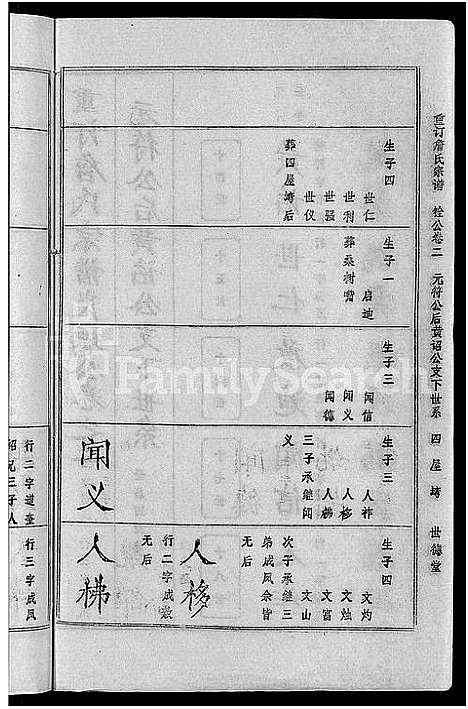 重订詹氏宗谱 铨公卷二 元符公后黄诏公支下世系 四屋塆 世德堂
生子四
世仁
世利
世强
世仪
葬四屋塆后
生子一
启迪
葬桑树嘴
生子三
闻信
闻义
闻德
生子三
人祚
人移
人梯
三子承继闻
义
闻义
生子四
文灼
文烛
文富
文山
次子承继三
弟成凤余皆
无后
人移
行二字成
无后
人梯
行二字道
绍兄三子人
行三字成凤
FamilySearch